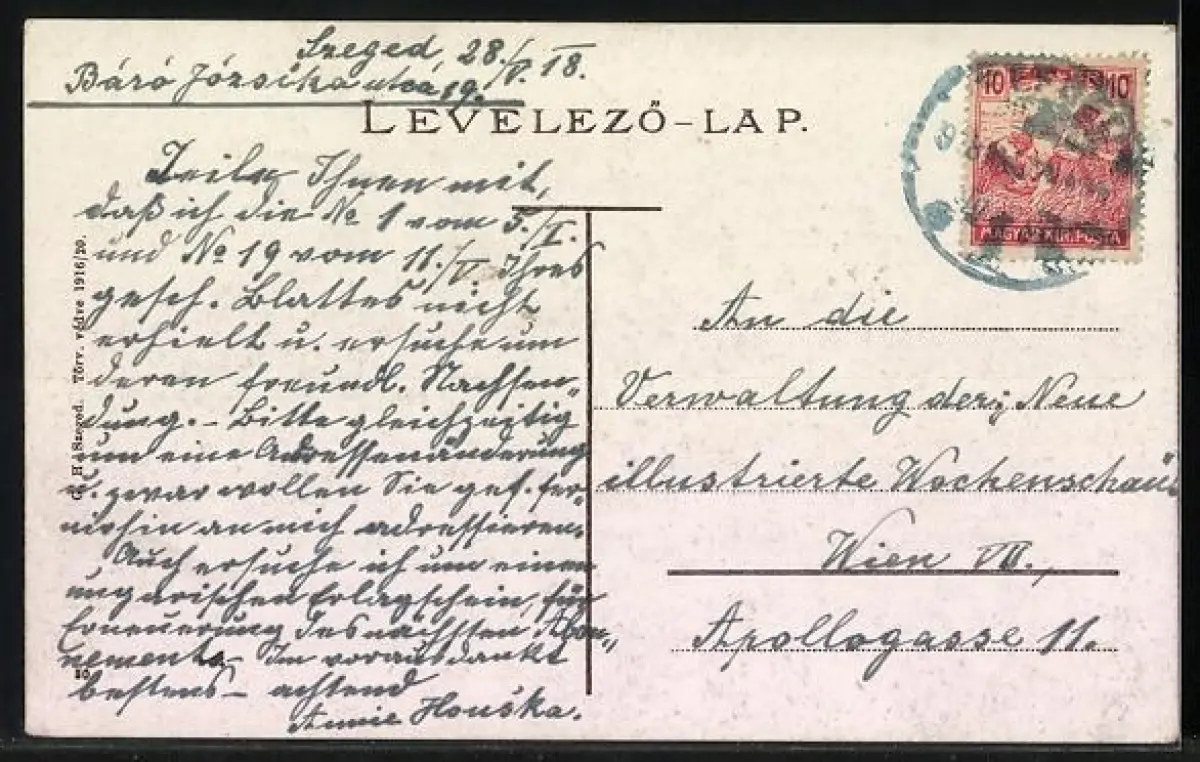 Szeged, 28./V. 18.
Báró Józsika utca 19.
LEVELEZŐ-LAP.
Teile Ihnen mit,
daß ich die No 1 vom 5./I.
und No 19 vom 11./V. Ihres
gesch. Blattes nicht
erhielt u. ersuche um
deren freundl. Nachsen„
dung. – Bitte gleichzeitig
um eine Adressenänderung
u. zwar wollen Sie gef. fer„
nerhin an mich adressieren.
Auch ersuche ich um einen
ungarischen Erlagschein, für
Erneuerung des nächsten Abon„
nements – Im voraus dankt
bestens – achtend
Annie Houska.
Szeged. Törv. védve 1916/20.
10 10
MAGYAR KIR. POSTA
An die
Verwaltung der „Neue
illustrierte Wochenschau“
Wien VII.,
Apollogasse 11.